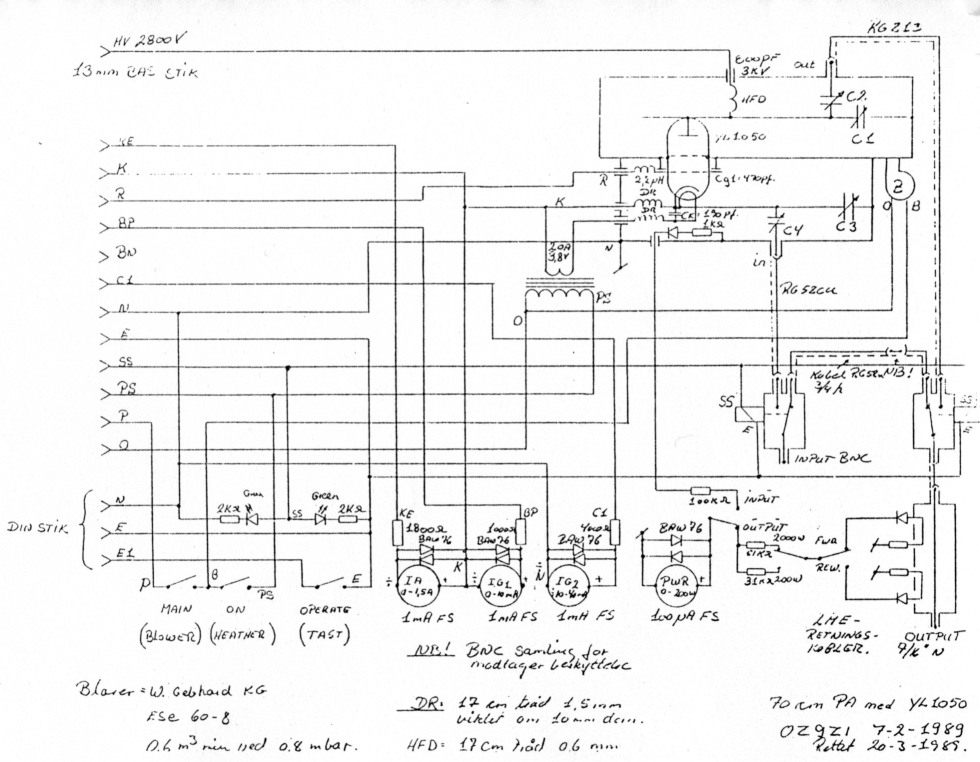 HV 2800V
13mm BAS STIK
KG213
out
3KV
HFD
C2
C1
YL1050
KE
K
R
BP
BN
C1
N
E
SS
PS
P
O
R
2,2µH
DR
DR
Cg1=470pf.
K
1kΩ
C4
C3
2
O
B
N
in
20A
3,8V
PS
O
RG52cu
Kabel RG52cu NB!
SS
E
SS
E
INPUT BNC
DIN STIK
N
E
E1
Green
2KΩ
SS
Green
2KΩ
P
B
PS
E
MAIN
ON
OPERATE
(BLOWER)
(HEATHER)
(TAST)
KE
1800Ω
BAW76
K
IA
0-1,5A
1mA FS
BP
1000Ω
BAW76
IG1
0-10mA
1mA FS
N
C1
BAW76
IG2
1mA FS
100KΩ
INPUT
BAW76
OUTPUT
2000W
200W
PWR
0-200W
100µA FS
FWR
REW.
LINE-
RETNINGS-
KOBLER.
OUTPUT
N
NB! BNC samling for
modlager beskyttelse
Blæser = W. Gebhard KG
ESe 60-8
0.6 m³ min ved 0.8 mbar.
DR: 17 cm tråd 1,5mm
viklet om 10mm dorn.
HFD= 17cm tråd 0.6 mm
70 cm PA med YL1050
OZ9ZI 7-2-1989
Rettet 20-3-1989.